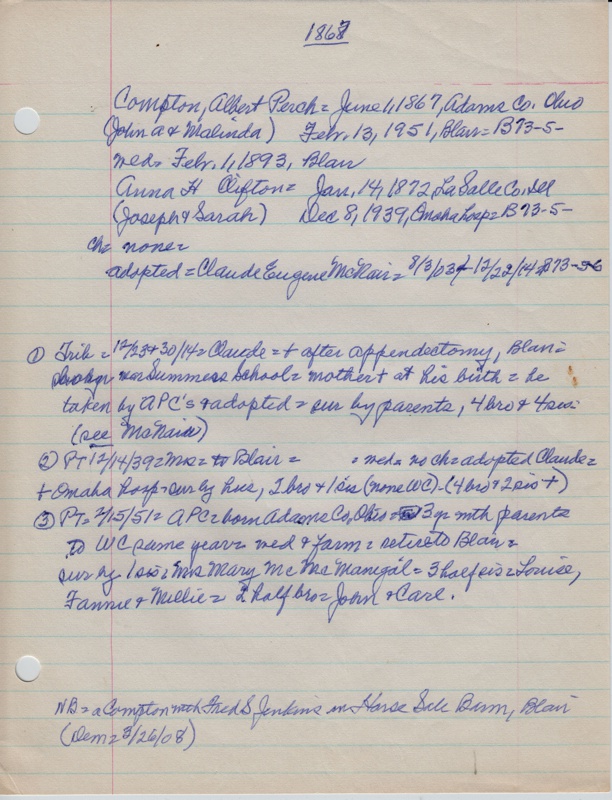 1867
Compton, Albert Perch = June 1, 1867, Adams Co. Ohio
(John A & Malinda) Febr. 13, 1951, Blair = B73-5-
wed = Febr. 1, 1893, Blair
Anna H Clifton = Jan. 14, 1872, LaSalle Co, Ill
(Joseph & Sarah) Dec 8, 1939, Omaha hosp = B73-5-
ch = none =
adopted = Claude Eugene McNair = 8/3/03 + 12/22/14 = B73-5-6
① Trib = 12/23 & 30/14 = Claude = + after appendectomy, Blair =
near Summers School = mother + at his birth = he
taken by APC's & adopted = sur by parents, 4 bro & 4 sis =
(see McNair)
② PT 12/14/39 = Mrs = to Blair = = wed = no ch = adopted Claude =
+ Omaha hosp = sur by hus, 2 bro & 1 sis (none WC) - (4 bro & 2 sis +)
③ PT = 2/15/51 = APC = born Adams Co, Ohio = 3 yr with parents
to WC same year = wed & farm = retire to Blair =
sur by 1 sis = Mrs Mary Mc Manegal = 3 half sis = Louise,
Fannie & Millie = 2 half bro = John & Carl.
NB = a Compton with Fred S Jenkins in Horse Sale Barn, Blair
(Dem = 3/26/08)